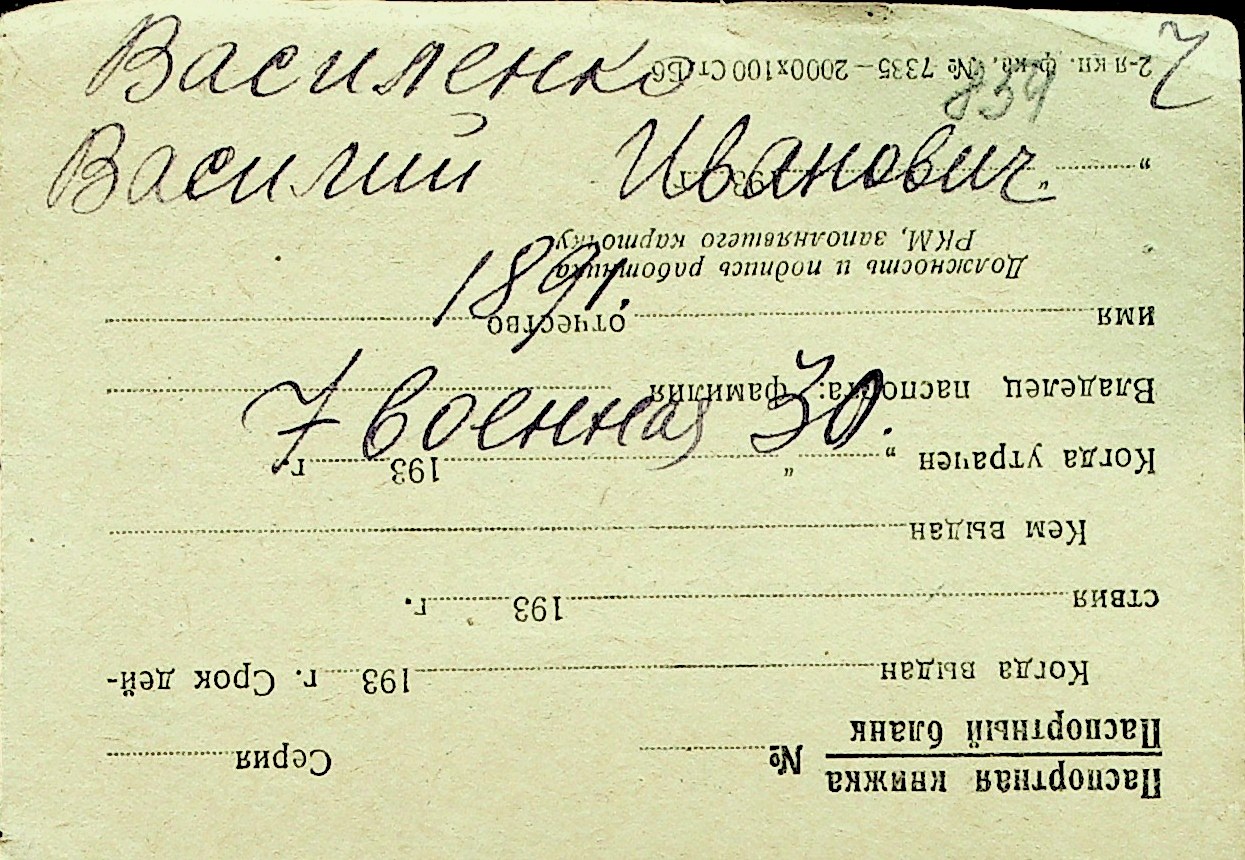 Василенко 7
839
Василий Иванович
1891.
7 военная 30.
Паспортная книжка
Паспортный бланк № Серия
Когда выдан 193 г. Срок дей-
ствия 193 г.
Кем выдан
Когда утрачен „ “ 193 г.
Владелец паспорта: фамилия
имя отчество
Должность и подпись работника
РКМ, заполнявшего карточку
„ “ 193 г.
2-я кн. ф-ка, № 7335 — 2000х100 Ст Б6